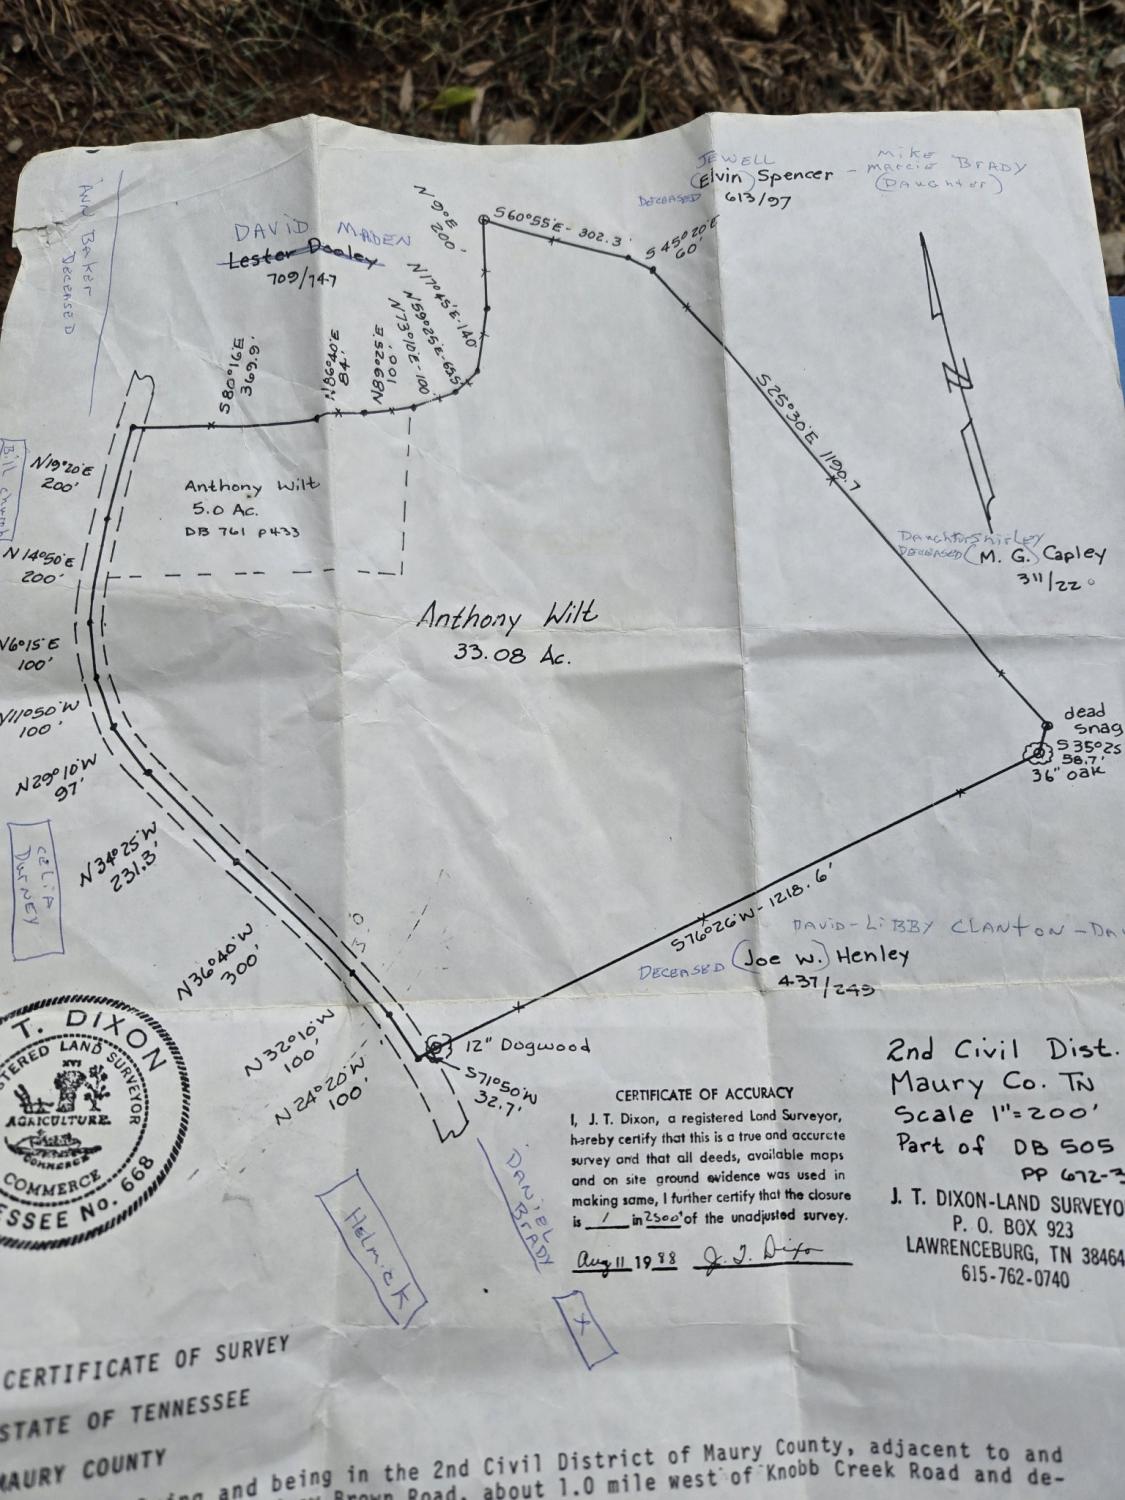 JEWELL
(Elvin) Spencer - MIKE
MARCIE BRADY
(DAUGHTER)
DECEASED 613/97
ANN Baker
DECEASED
DAVID MADEN
Lester Dooley
709/747
N 9°E
200'
S60°55'E - 302.3'
S 45°20'E
60'
N17°45'E-140'
N59°25'E-65.5
N73°10'E-100
N86°25'E
100'
N86°40'E
84'
S80°16'E
369.9'
S25°30'E 1190.7
N19°20'E
200'
Anthony Wilt
5.0 Ac.
DB 761 P433
N14°50'E
200'
DAUGHTER Shirley
DECEASED (M. G.) Capley
311/22
Anthony Wilt
33.08 Ac.
N6°15'E
100'
N11°50'W
100'
N29°10'W
97'
dead
snag
S35°25
58.7'
36" oak
CELIA
N34°25'W
231.3'
S76°26'W - 1218.6'
DAVID-LIBBY CLANTON -
DECEASED (Joe W.) Henley
437/249
N36°40'W
300'
3.0
N32°10'W
100'
N24°20'W
100'
12" Dogwood
S71°50'W
32.7'
T. DIXON
LAND SURVEYOR
AGRICULTURE
COMMERCE
COMMERCE
No. 698
Helmick
DANIEL
BRADY
X
CERTIFICATE OF ACCURACY
I, J. T. Dixon, a registered Land Surveyor,
hereby certify that this is a true and accurate
survey and that all deeds, available maps
and on site ground evidence was used in
making same, I further certify that the closure
is 1 in 2500' of the unadjusted survey.
Aug 11 19 88 J. T. Dixon
2nd Civil Dist.
Maury Co. TN
Scale 1"=200'
Part of DB 505
PP 672-3
J. T. DIXON-LAND SURVEYO
P. O. BOX 923
LAWRENCEBURG, TN 38464
615-762-0740
CERTIFICATE OF SURVEY
STATE OF TENNESSEE
MAURY COUNTY
and being in the 2nd Civil District of Maury County, adjacent to and
Brown Road, about 1.0 mile west of Knobb Creek Road and de-